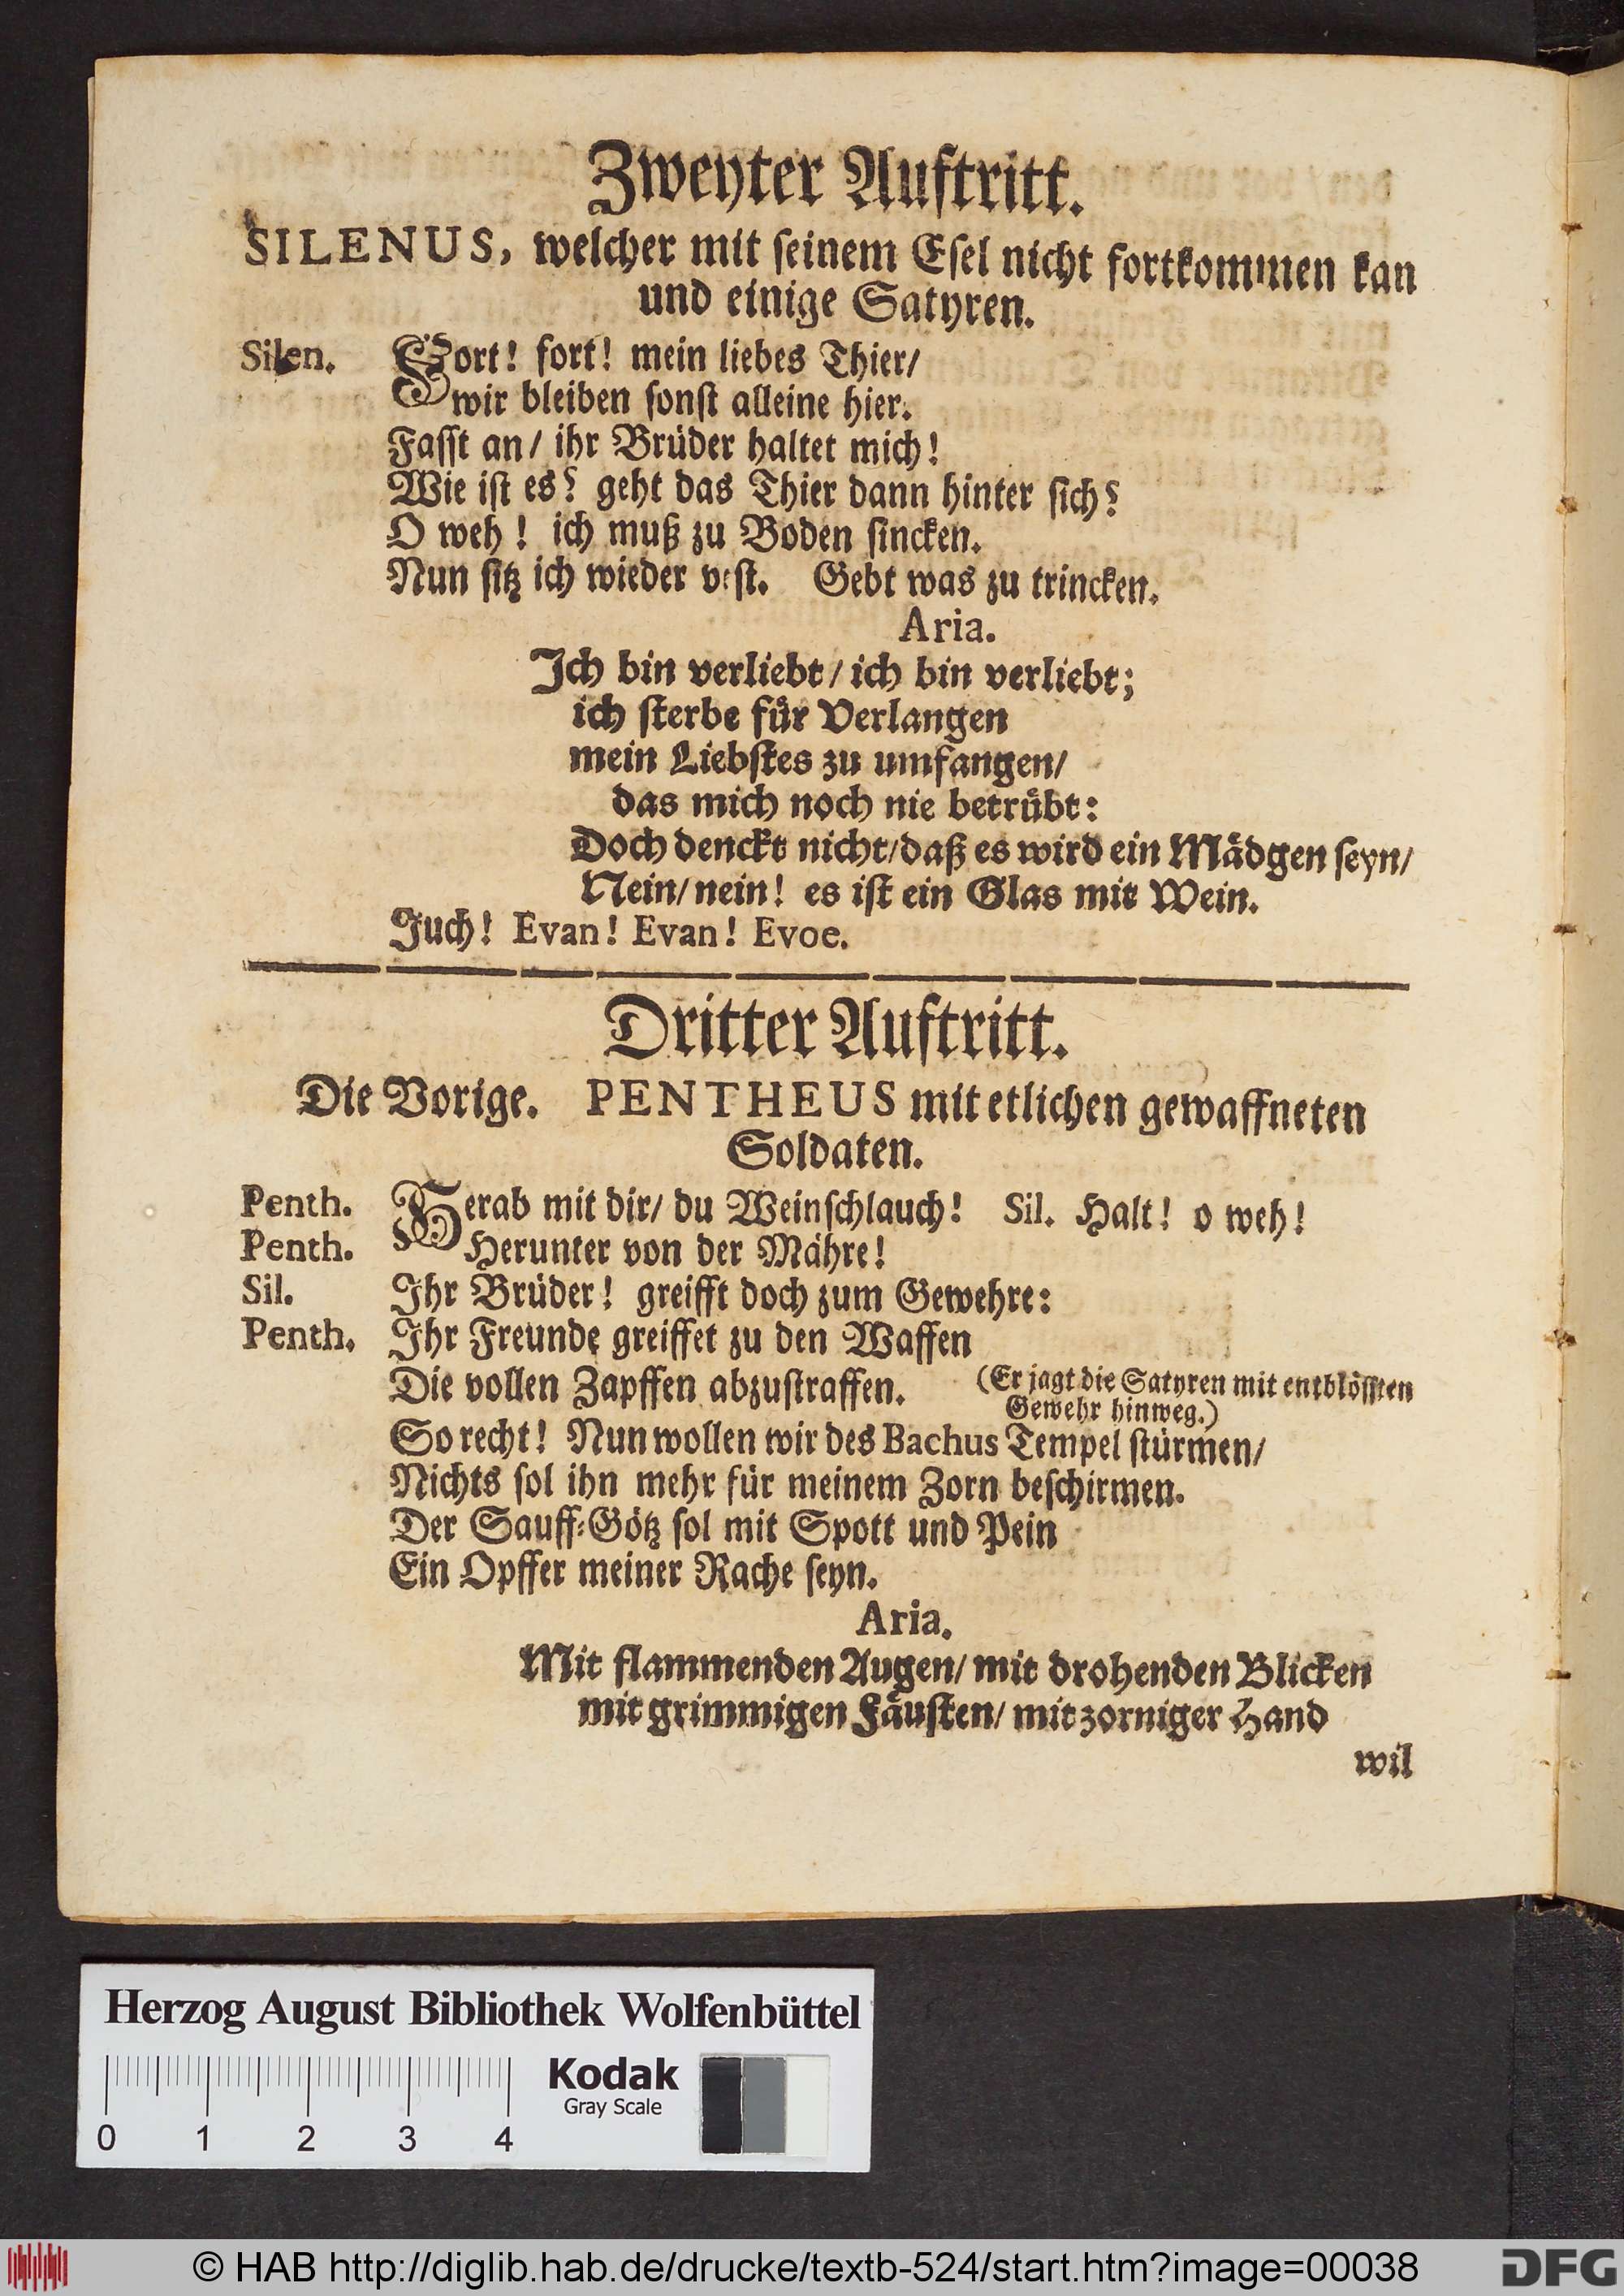 Zweyter Auftritt.
SILENUS, welcher mit seinem Esel nicht fortkommen kan
und einige Satyren.
Silen. Fort! fort! mein liebes Thier/
wir bleiben sonst alleine hier.
Fasst an/ ihr Brüder haltet mich!
Wie ist es? geht das Thier dann hinter sich?
O weh! ich muß zu Boden sincken.
Nun sitz ich wieder vest. Gebt was zu trincken.
Aria.
Ich bin verliebt/ ich bin verliebt;
ich sterbe für Verlangen
mein Liebstes zu umfangen/
das mich noch nie betrübt:
Doch denckt nicht/daß es wird ein Mädgen seyn/
Nein/nein! es ist ein Glas mit Wein.
Juch! Evan! Evan! Evoe.
Dritter Auftritt.
Die Vorige. PENTHEUS mit etlichen gewaffneten
Soldaten.
Penth. Herab mit dir/ du Weinschlauch! Sil. Halt! o weh!
Penth. Herunter von der Mähre!
Sil. Ihr Brüder! greifft doch zum Gewehre:
Penth. Ihr Freunde greiffet zu den Waffen
Die vollen Zapffen abzustraffen. (Er jagt die Satyren mit entblössten
Gewehr hinweg.)
So recht! Nun wollen wir des Bachus Tempel stürmen/
Nichts sol ihn mehr für meinem Zorn beschirmen.
Der Sauff-Götz sol mit Spott und Pein
Ein Opffer meiner Rache seyn.
Aria.
Mit flammenden Augen/ mit drohenden Blicken
mit grimmigen Fäusten/ mit zorniger Hand
wil
Herzog August Bibliothek Wolfenbüttel
Kodak
Gray Scale
0 1 2 3 4
© HAB http://diglib.hab.de/drucke/textb-524/start.htm?image=00038
DFG